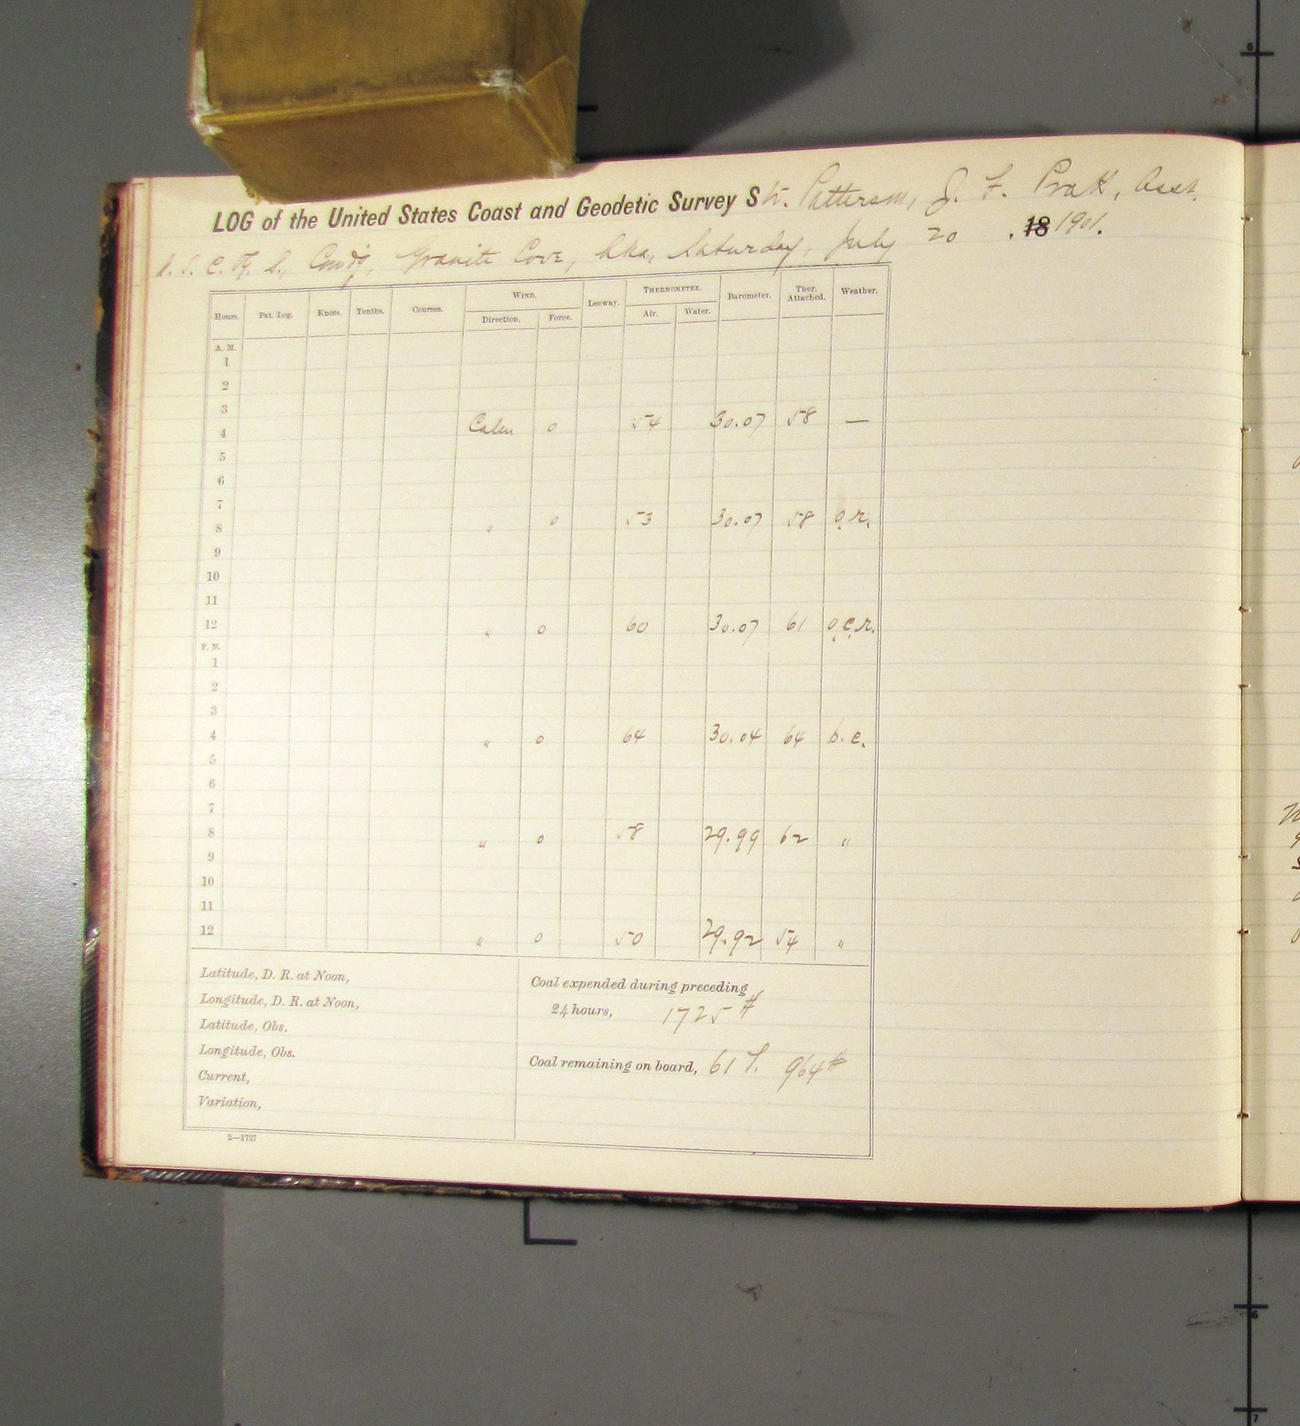 LOG of the United States Coast and Geodetic Survey Str. Patterson, J. F. Pratt, Asst.
Comd'g, Granite Cove, Saturday, July 20 . 18 1901.
Hours. Pat. Log. Knots. Tenths. Courses. WIND. Leeway. THERMOMETER. Barometer. Ther. Attached. Weather.
Direction. Force. Air. Water.
A. M.
1
2
3
4 Calm 0 54 30.07 58 —
5
6
7
8 " 0 53 30.07 58 o.r.
9
10
11
12 " 0 60 30.07 61 o.c.r.
P. M.
1
2
3
4 " 0 64 30.04 64 b.c.
5
6
7
8 " 0 58 29.99 62 "
9
10
11
12 " 0 50 29.92 54 "
Latitude, D. R. at Noon,
Longitude, D. R. at Noon,
Latitude, Obs.
Longitude, Obs.
Current,
Variation,
Coal expended during preceding
24 hours, 1725 #
Coal remaining on board, 61 T. 964 #
2—1727
6
6
7